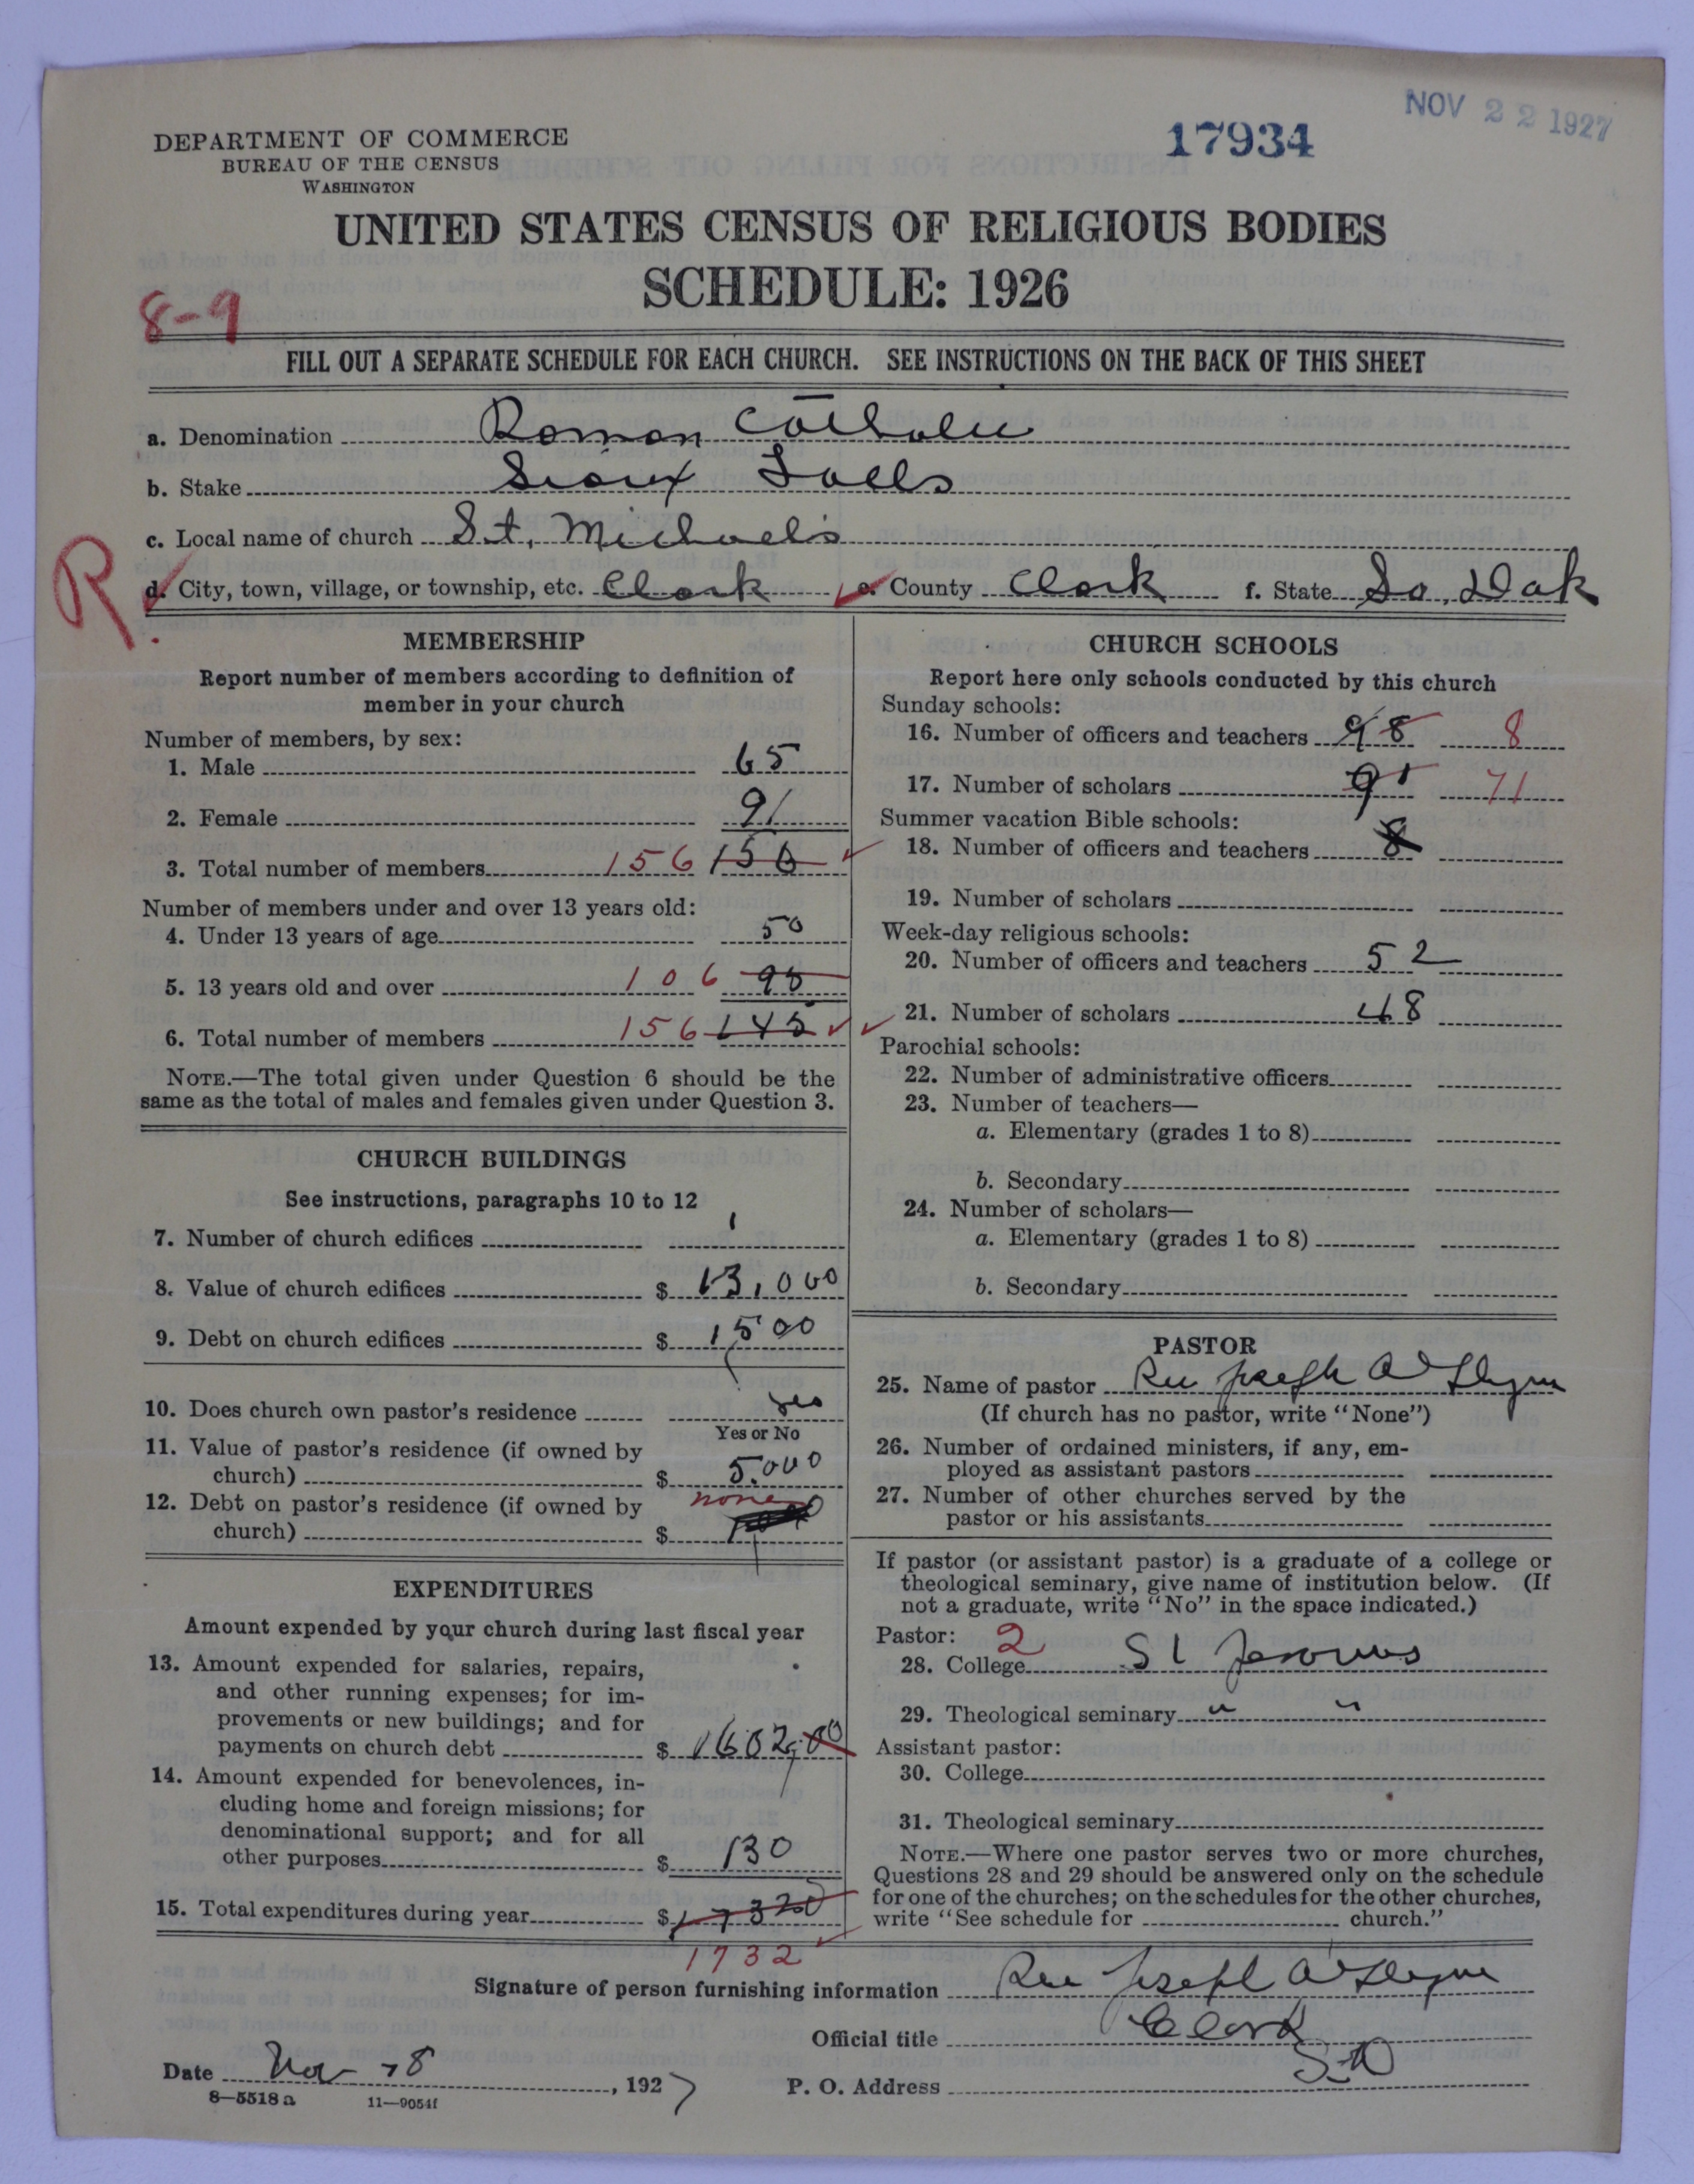 NOV 22 1927
17934
DEPARTMENT OF COMMERCE
BUREAU OF THE CENSUS
WASHINGTON
UNITED STATES CENSUS OF RELIGIOUS BODIES
SCHEDULE: 1926
8-9
FILL OUT A SEPARATE SCHEDULE FOR EACH CHURCH. SEE INSTRUCTIONS ON THE BACK OF THIS SHEET
a. Denomination Roman Catholic
b. Stake Sioux Falls
c. Local name of church St. Michael's
R.
d. City, town, village, or township, etc. Clark e. County Clark f. State So. Dak
MEMBERSHIP
Report number of members according to definition of
member in your church
Number of members, by sex:
1. Male 65
2. Female 91
3. Total number of members 156 156
Number of members under and over 13 years old:
4. Under 13 years of age 50
5. 13 years old and over 106 95
6. Total number of members 156 145
NOTE.—The total given under Question 6 should be the
same as the total of males and females given under Question 3.
CHURCH BUILDINGS
See instructions, paragraphs 10 to 12
7. Number of church edifices 1
8. Value of church edifices $ 13,000
9. Debt on church edifices $ 1500
10. Does church own pastor's residence yes
Yes or No
11. Value of pastor's residence (if owned by
church) $ 5.000
12. Debt on pastor's residence (if owned by
church) $ none
EXPENDITURES
Amount expended by your church during last fiscal year
13. Amount expended for salaries, repairs,
and other running expenses; for im-
provements or new buildings; and for
payments on church debt $ 1602,00
14. Amount expended for benevolences, in-
cluding home and foreign missions; for
denominational support; and for all
other purposes $ 130
15. Total expenditures during year $ 17320
1732
CHURCH SCHOOLS
Report here only schools conducted by this church
Sunday schools:
16. Number of officers and teachers 98 8
17. Number of scholars 71
Summer vacation Bible schools:
18. Number of officers and teachers 8
19. Number of scholars
Week-day religious schools:
20. Number of officers and teachers 52
21. Number of scholars 48
Parochial schools:
22. Number of administrative officers
23. Number of teachers—
a. Elementary (grades 1 to 8)
b. Secondary
24. Number of scholars—
a. Elementary (grades 1 to 8)
b. Secondary
PASTOR
25. Name of pastor Rev Joseph A O'Flynn
(If church has no pastor, write "None")
26. Number of ordained ministers, if any, em-
ployed as assistant pastors
27. Number of other churches served by the
pastor or his assistants
If pastor (or assistant pastor) is a graduate of a college or
theological seminary, give name of institution below. (If
not a graduate, write "No" in the space indicated.)
Pastor: 2
28. College St Jeromes
29. Theological seminary " "
Assistant pastor:
30. College
31. Theological seminary
NOTE.—Where one pastor serves two or more churches,
Questions 28 and 29 should be answered only on the schedule
for one of the churches; on the schedules for the other churches,
write "See schedule for church."
Signature of person furnishing information Rev Joseph A O'Flynn
Official title Clark
S.D
Date Nov 18, 1927 P. O. Address
8—5518 a 11—9054f